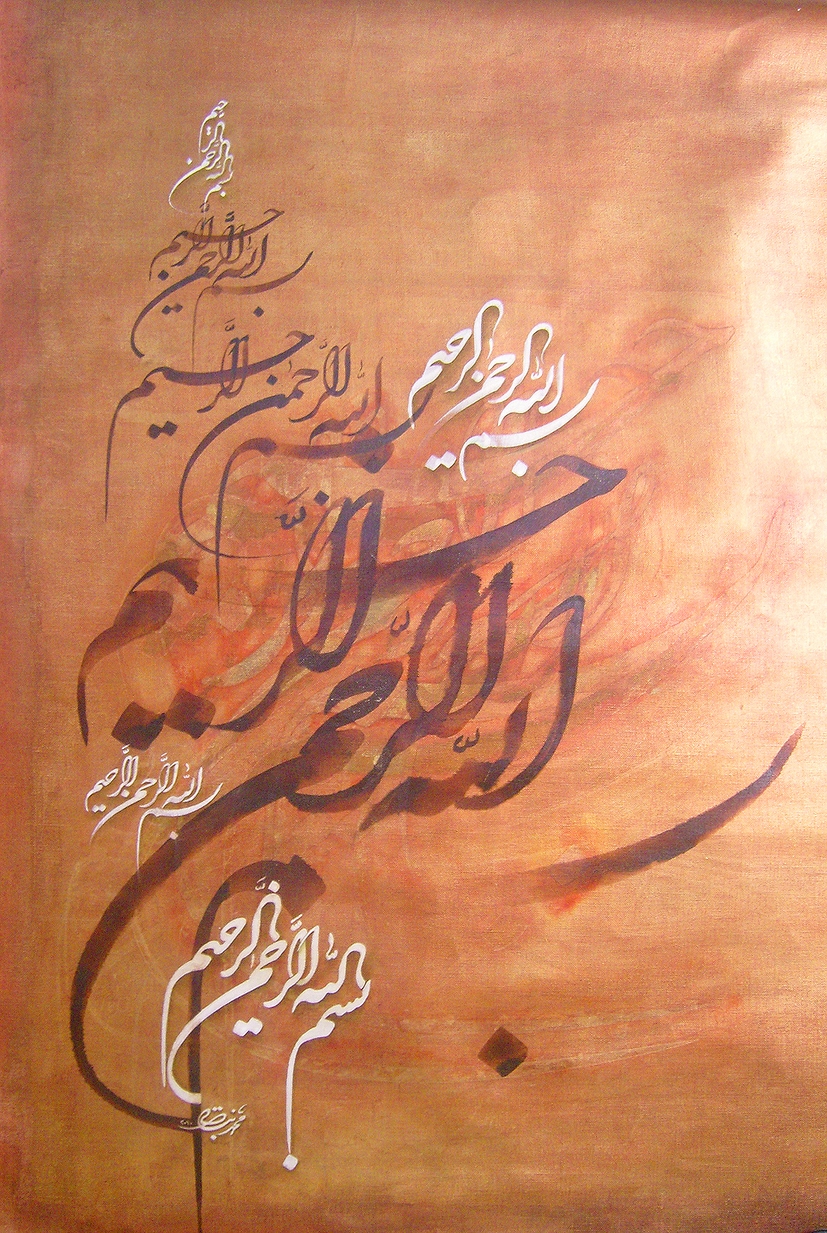 بسم الله الرحمن الرحيم
بسم الله الرحمن الرحيم
بسم الله الرحمن الرحيم
بسم الله الرحمن الرحيم
بسم الله الرحمن الرحيم
بسم الله الرحمن الرحيم
بسم الله الرحمن الرحيم
محمد